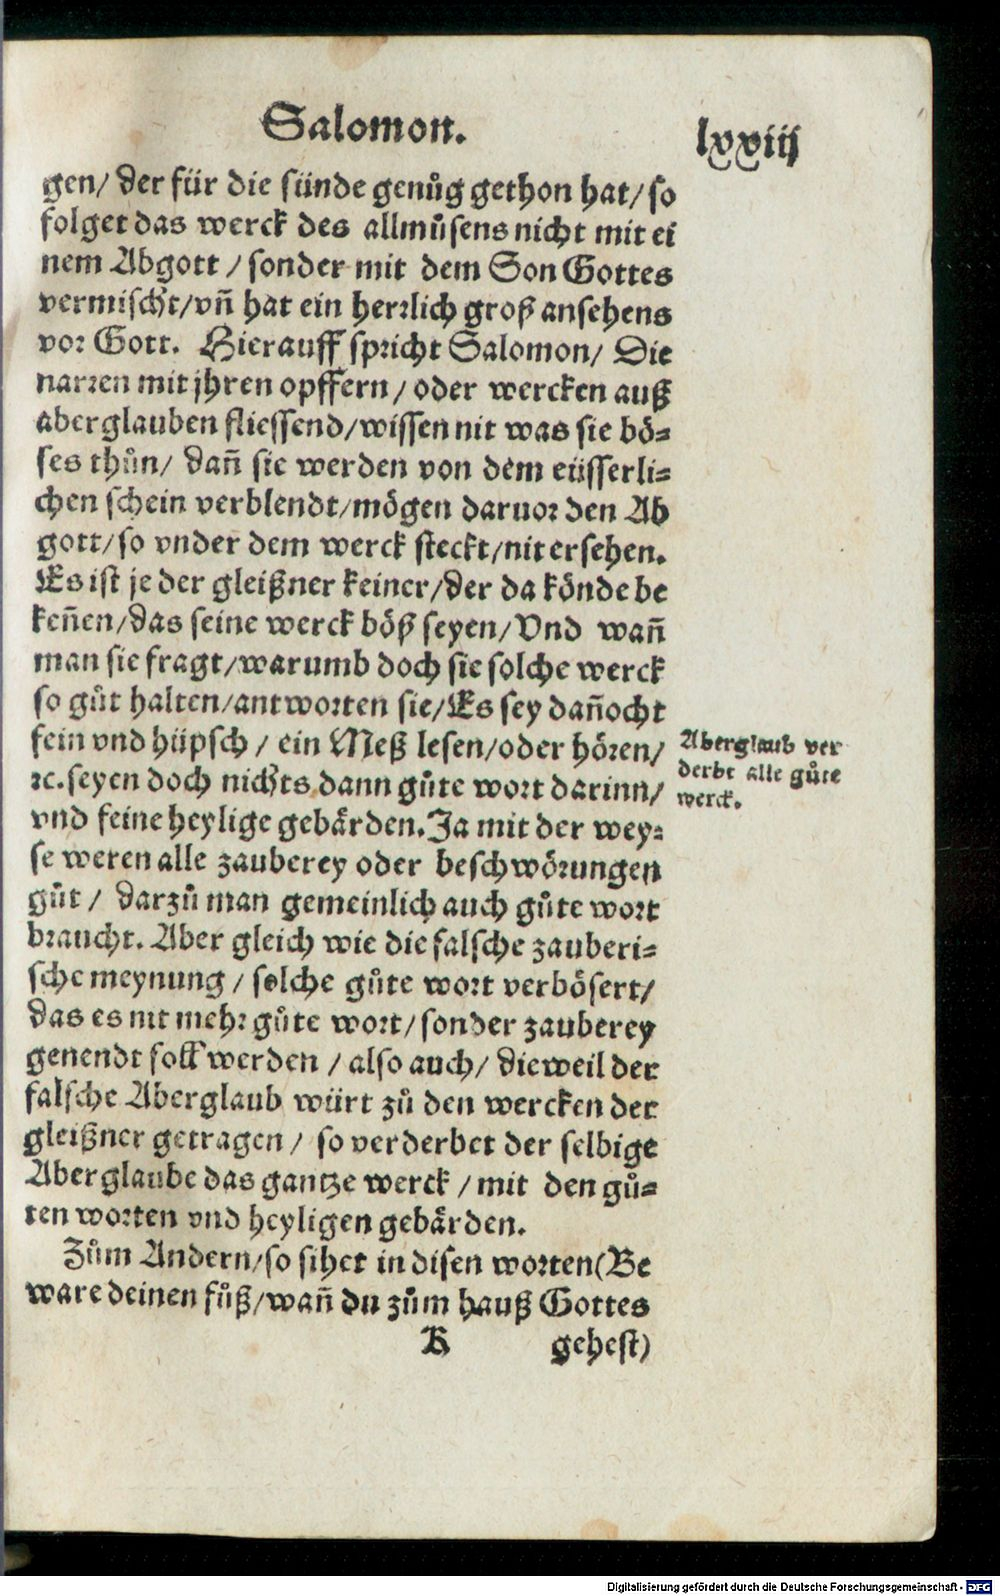 Salomon.
lxxiij
gen/ der für die sünde genůg gethon hat/ so
folget das werck des allmůsens nicht mit ei
nem Abgott / sonder mit dem Son Gottes
vermischt/ vn̄ hat ein herrlich groß ansehens
vor Gott. Hierauff spricht Salomon/ Die
narren mit jhren opffern / oder wercken auß
aberglauben fliessend/ wissen nit was sie bö⸗
ses thůn/ dan̄ sie werden von dem eüsserli⸗
chen schein verblendt/ mögen daruor den Ab
gott/ so vnder dem werck steckt/ nit ersehen.
Es ist je der gleißner keiner/ der da könde be
ken̄en/ das seine werck böß seyen/ Vnd wan̄
man sie fragt/ warumb doch sie solche werck
so gůt halten/ antworten sie/ Es sey dan̄ocht
fein vnd hüpsch / ein Meß lesen/ oder hören/
ꝛc. seyen doch nichts dann gůte wort darinn/
vnd feine heylige gebärden. Ja mit der wey⸗
se weren alle zauberey oder beschwörungen
gůt / darzů man gemeinlich auch gůte wort
braucht. Aber gleich wie die falsche zauberi⸗
sche meynung / solche gůte wort verbösert/
das es nit mehr gůte wort/ sonder zauberey
genendt soll werden / also auch/ dieweil der
falsche Aberglaub würt zů den wercken der
gleißner getragen / so verderbet der selbige
Aberglaube das gantze werck / mit den gů⸗
ten worten vnd heyligen gebärden.
Zům Andern/ so sihet in disen worten (Be
ware deinen fůß/ wan̄ du zům hauß Gottes
K gehest)
Aberglaub ver
derbt alle gůte
werck.
Digitalisierung gefördert durch die Deutsche Forschungsgemeinschaft - DFG